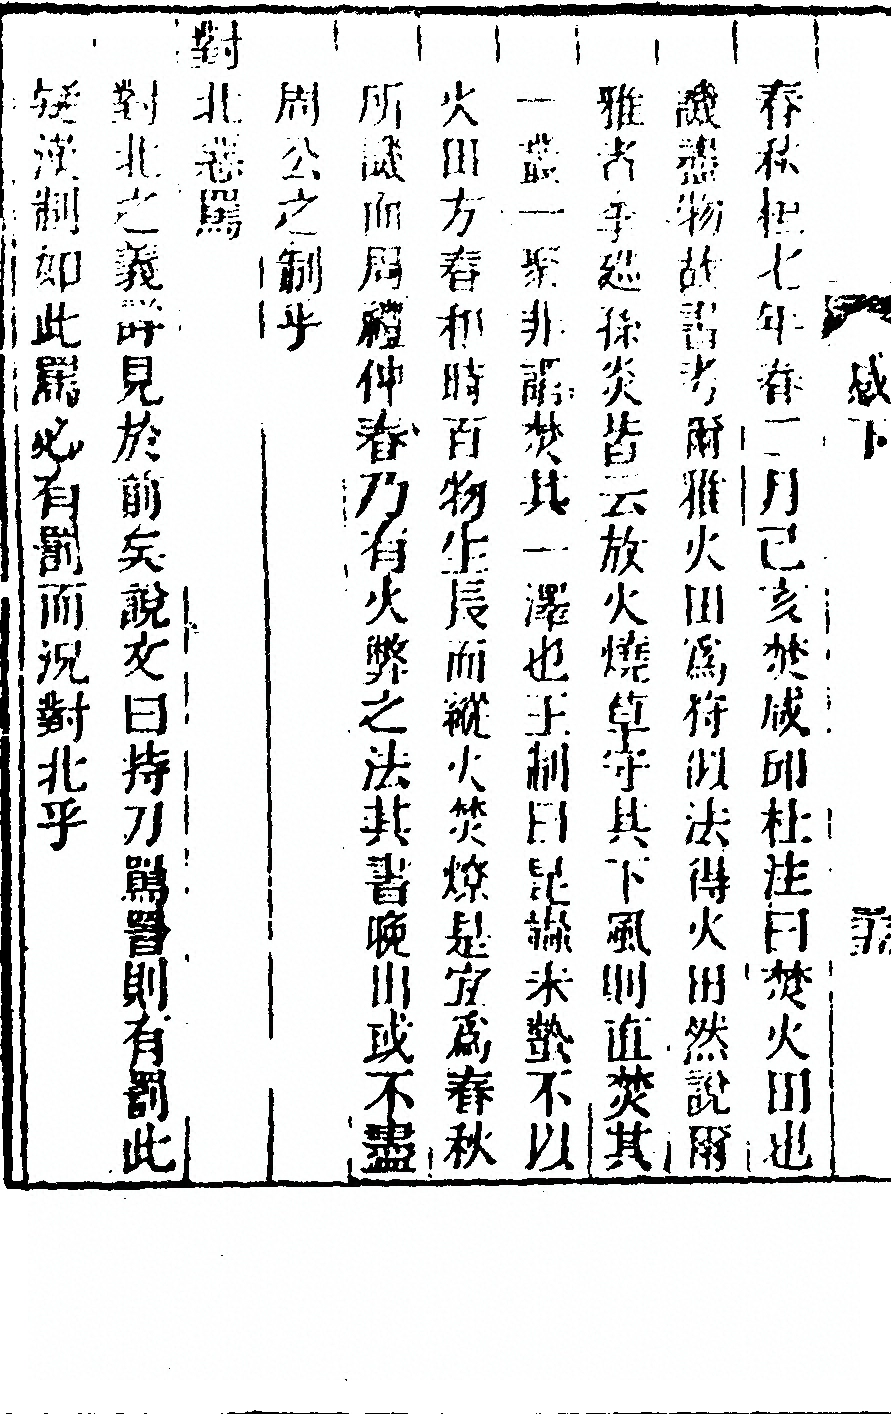 感下
春秋桓七年春二月己亥焚咸邱杜注曰焚火田也
譏盡物故書考爾雅火田為狩似法得火田然說爾
雅者李廵孫炎皆云放火燒草守其下風則直焚其
一叢一聚非謂焚其一澤也王制曰昆蟲未蟄不以
火田方春和時百物生長而縱火焚燎是宜為春秋
所譏而周禮仲春乃有火弊之法其書晚出或不盡
周公之制乎
對北惡罵
對北之義詳見於前矣說文曰持刀罵詈則有罰此
疑漢制如此罵必有罰而況對北乎